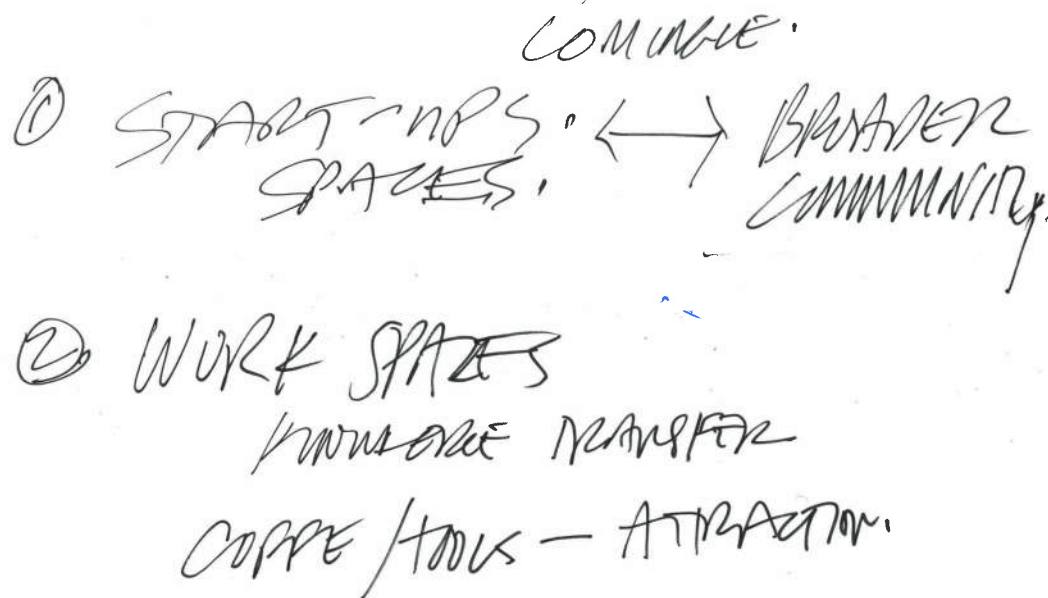 COMINGLE.
① START-UPS. ⟷ BROADER
SPACES. COMMUNITY.
② WORK SPACES
KNOWLEDGE TRANSFER
/TOOLS — ATTRACTION.